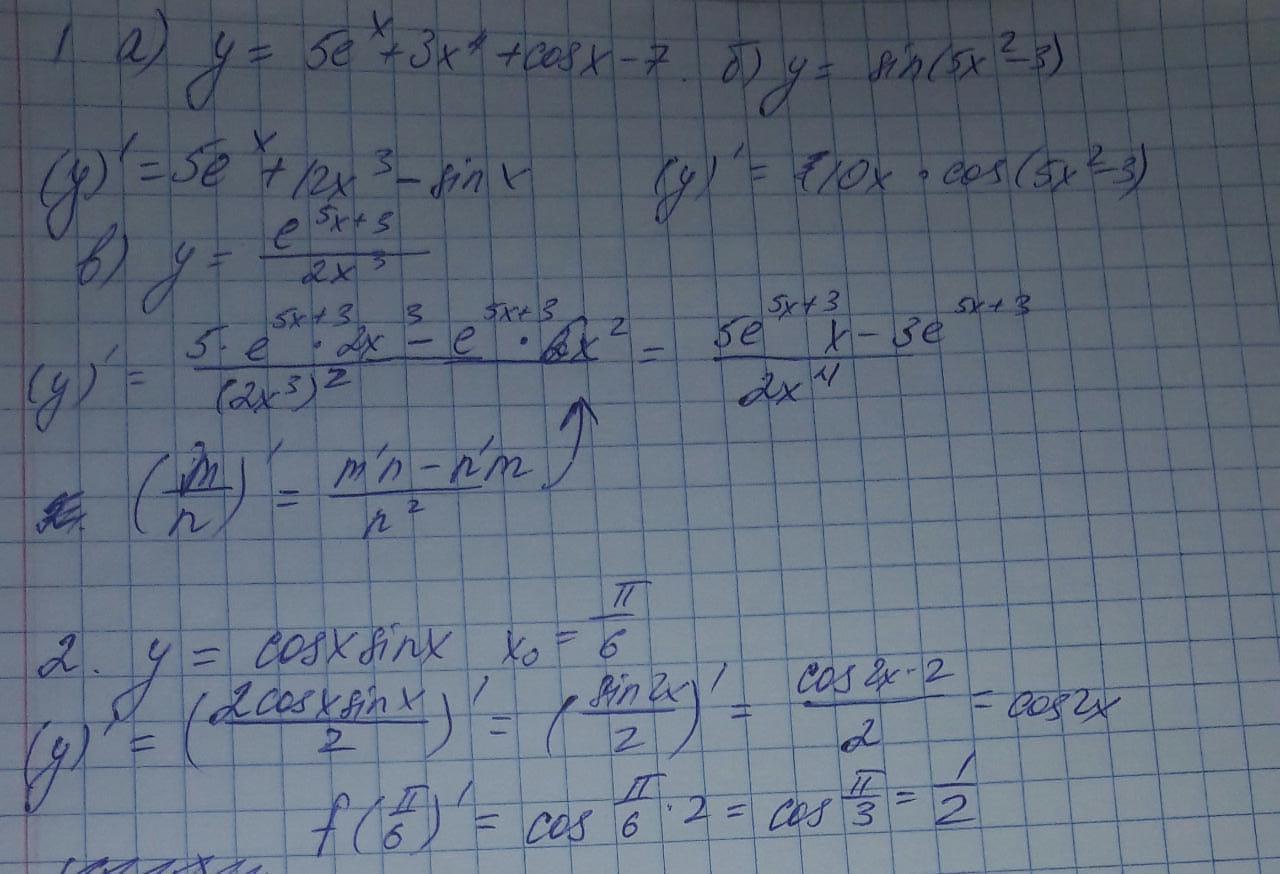 1 а) y = 5e^x + 3x^4 + cosx − 7. б) y = sin(5x² − 3)
(y)' = 5e^x + 12x³ − sin x (y)' = 10x · cos(5x² − 3)
в) y = e^(5x+3) / 2x³
(y)' = (5 · e^(5x+3) · 2x³ − e^(5x+3) · 6x²) / (2x³)² = (5e^(5x+3) x − 3e^(5x+3)) / 2x⁴
(m/n)' = (m'n − n'm) / n²
2. y = cosx sinx x₀ = π/6
(y)' = (2cosx sinx / 2)' = (sin2x / 2)' = cos2x · 2 / 2 = cos2x
f(π/6)' = cos π/6 · 2 = cos π/3 = 1/2